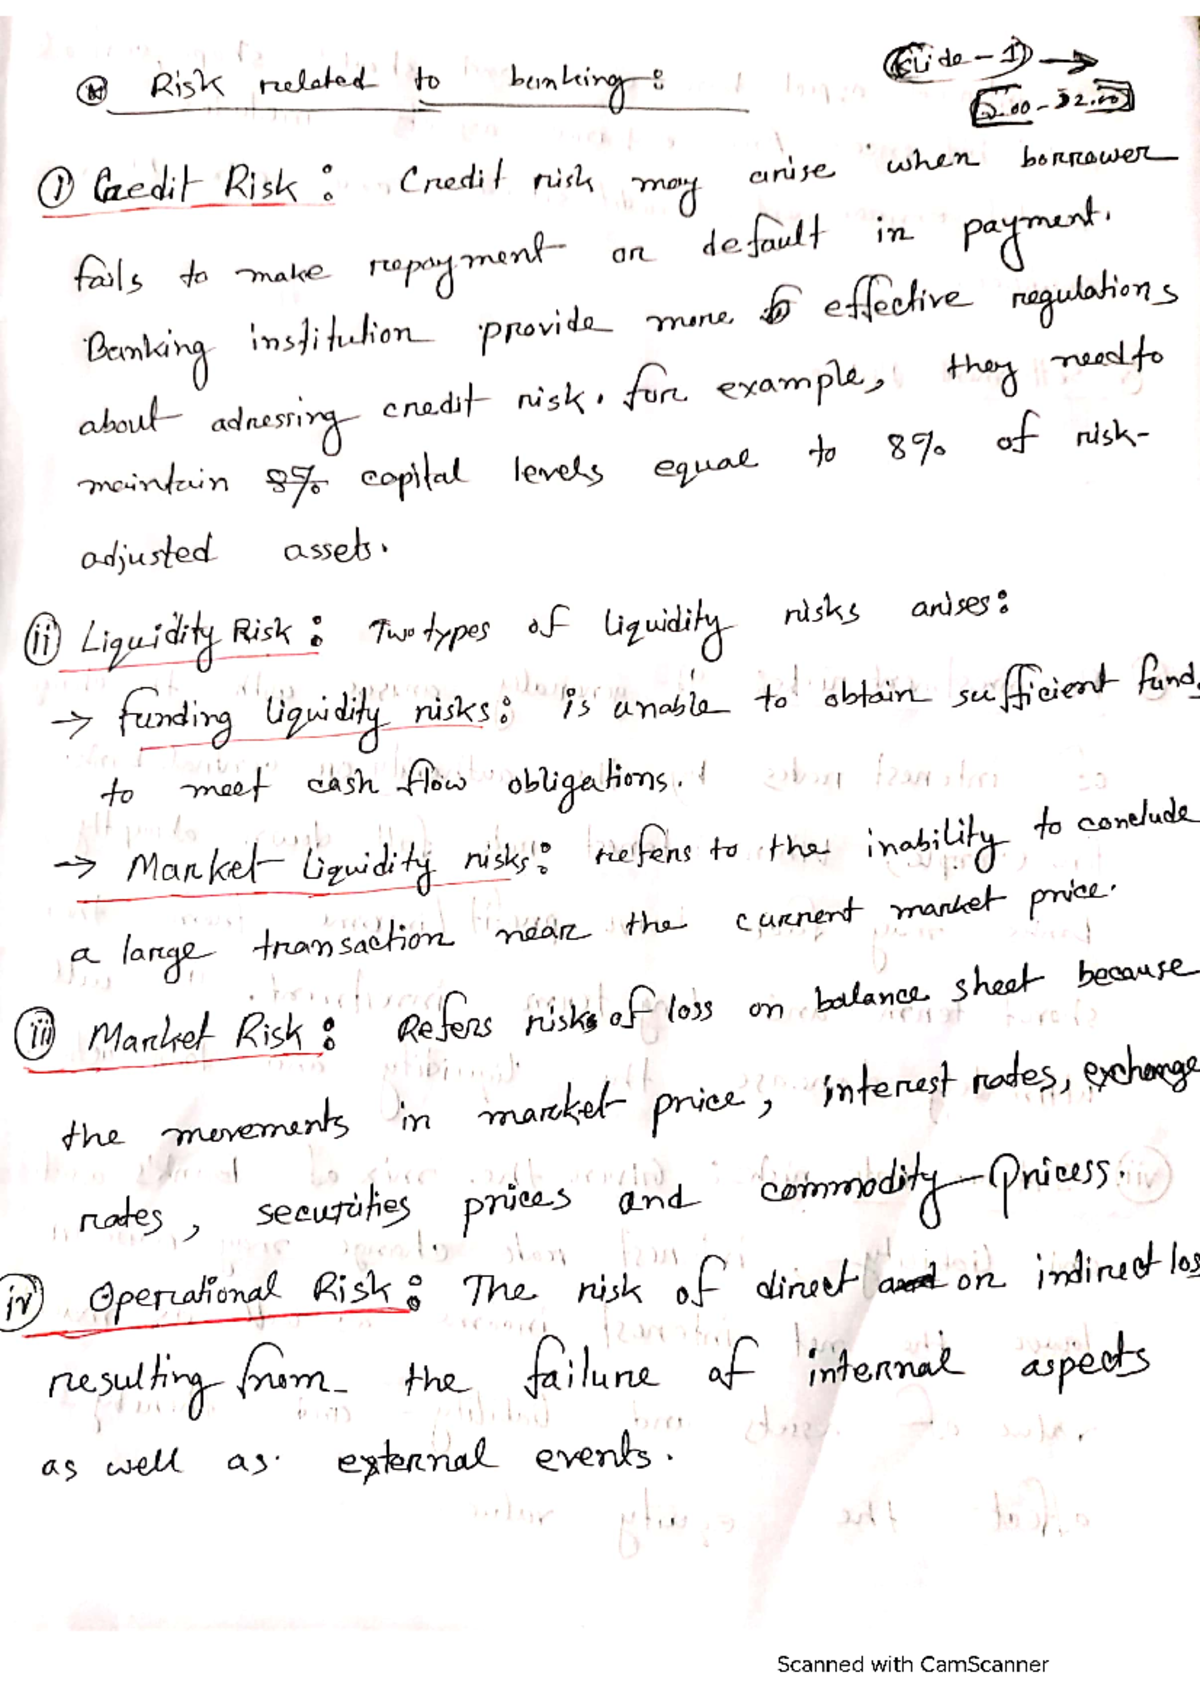 Risk related to banking:
Slide - 1
i Credit Risk: Credit risk may arise when borrower
fails to make repayment or default in payment.
Banking institution provide more effective regulations
about adressing credit risk. for example, they need to
maintain 8% capital levels equal to 8% of risk-
adjusted assets.
ii Liquidity Risk: Two types of liquidity risks arises:
→ funding liquidity risks: is unable to obtain sufficient fund
to meet cash flow obligations.
→ Market liquidity risks: refers to the inability to conclude
a large transaction near the current market price.
iii Market Risk: Refers risks of loss on balance sheet because
the movements in market price, interest rates, exchange
rates, securities prices and commodity pricess.
iv Operational Risk: The risk of direct and or indirect los
resulting from the failure of internal aspects
as well as external events.
Scanned with CamScanner